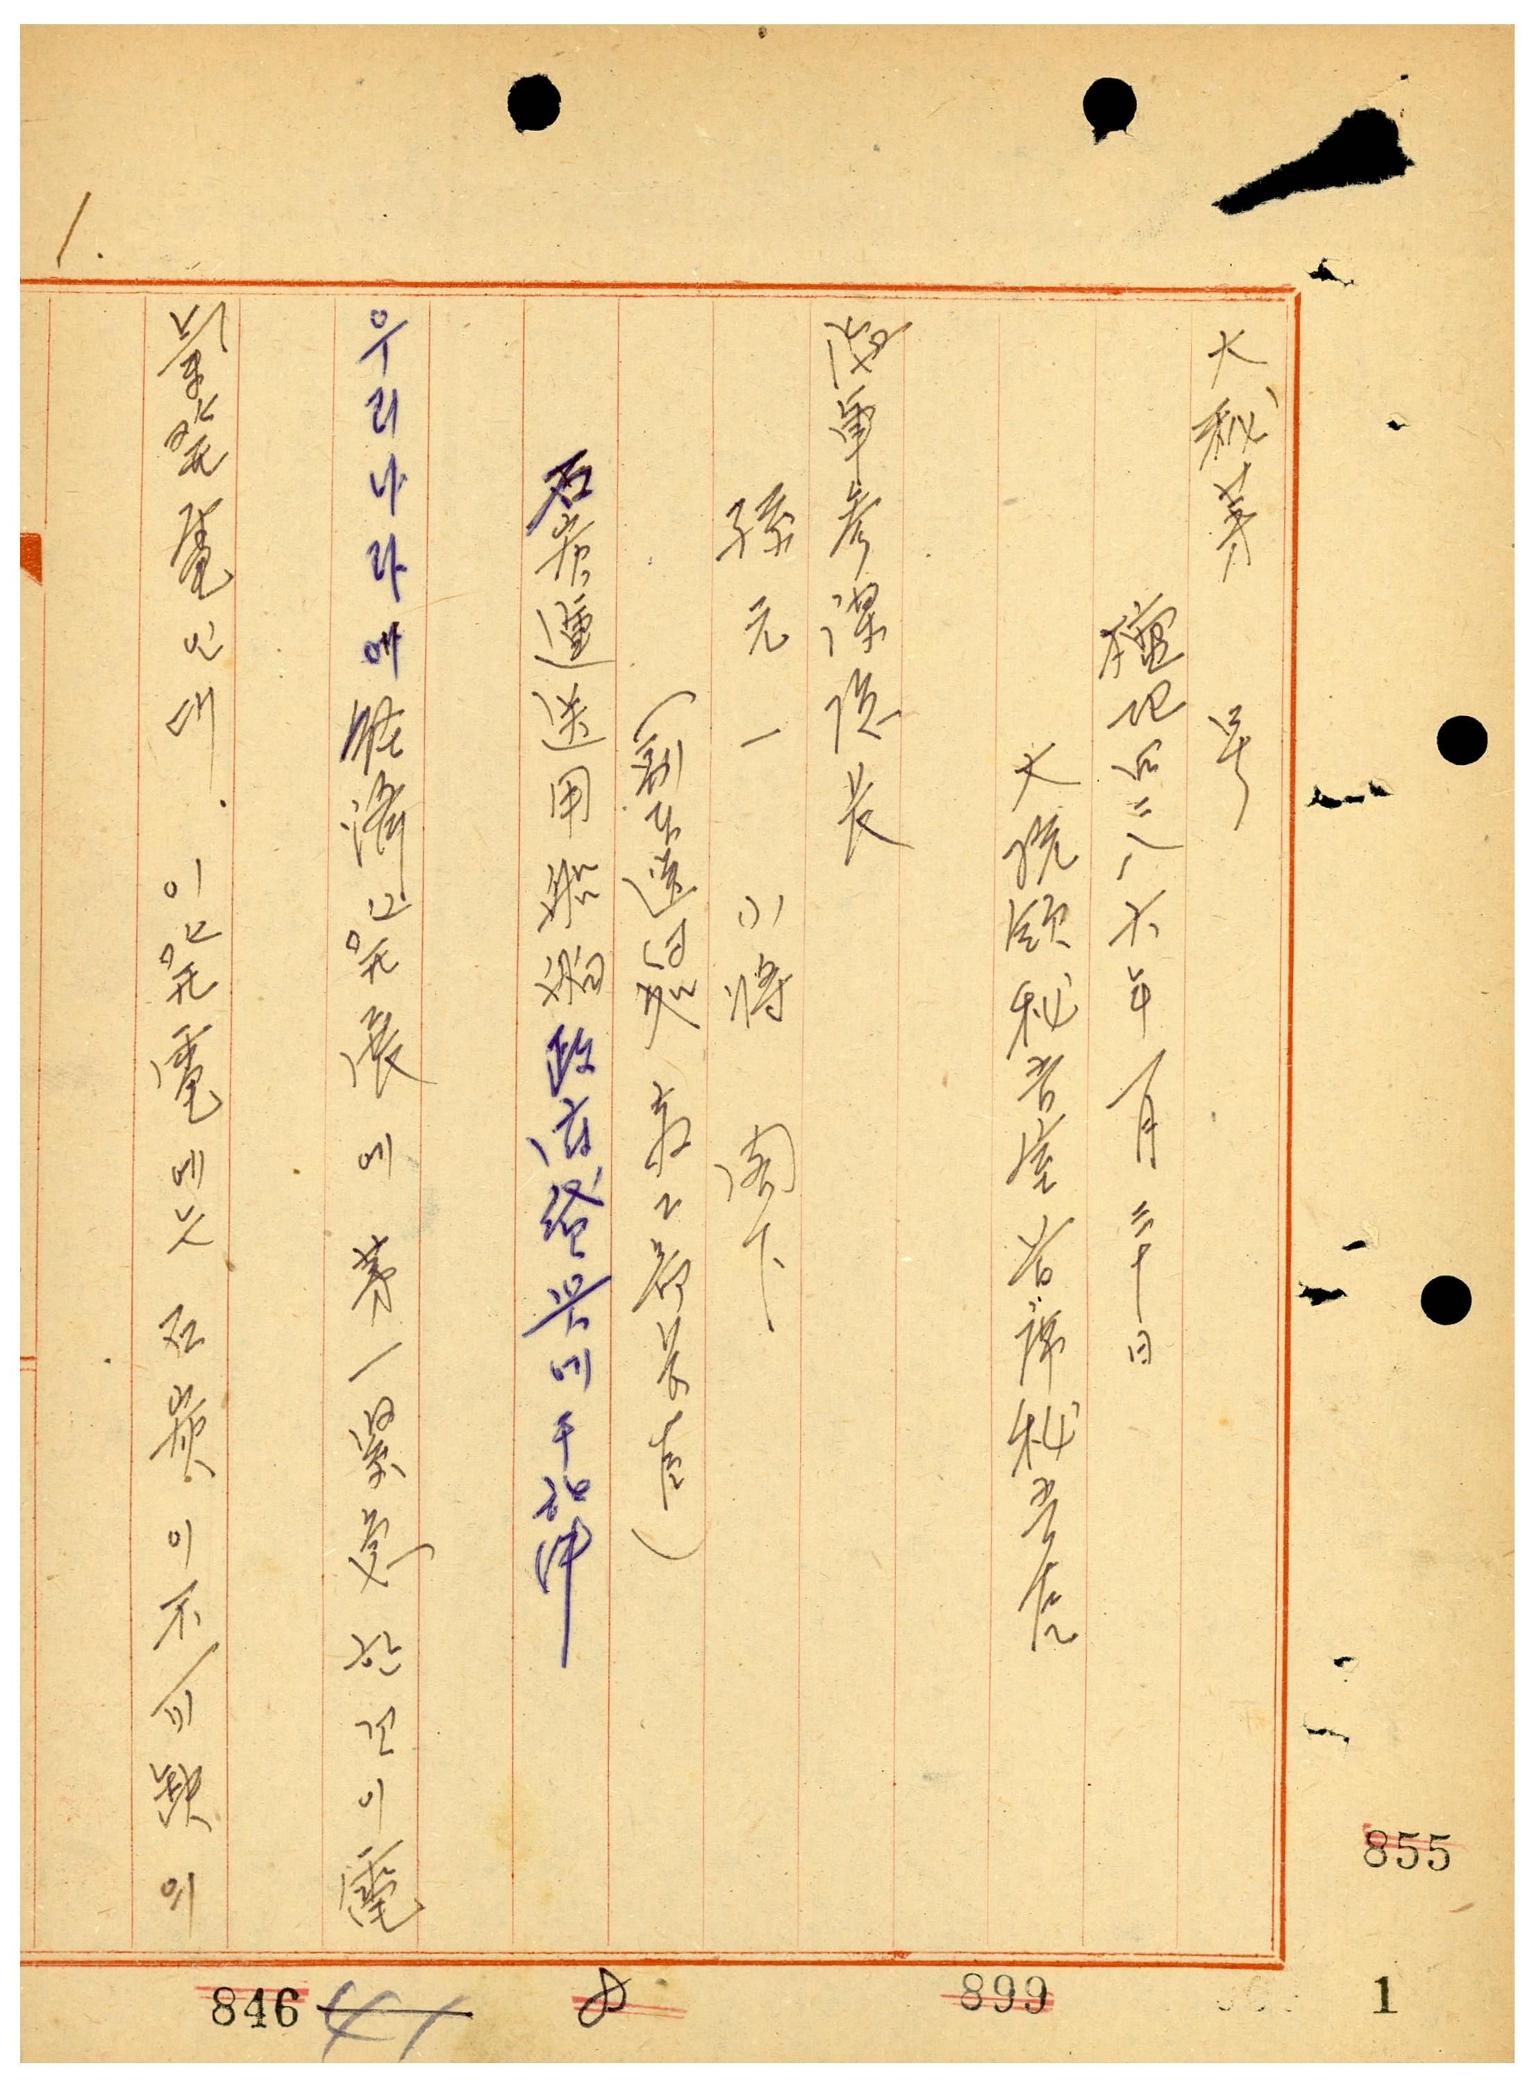 大秘第　　號
檀紀四二八六年一月三十日
大統領秘書室首席秘書官
海軍參謀總長
孫元一 小將 閣下
石炭運送用船舶政府發與에干한件
우리나라에 經濟 發展에 第一緊要한것이 電
氣發電인데. 이發電에는 石炭이不可缺의
1.
855
846
41
8
899
1